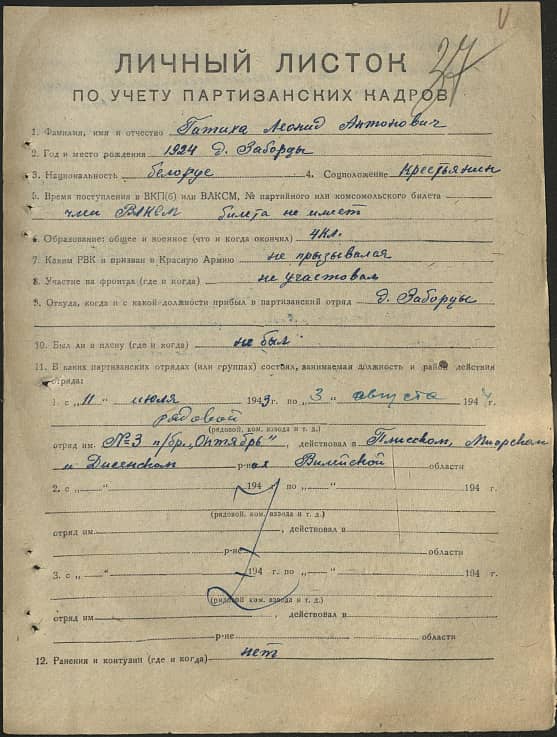 37
ЛИЧНЫЙ ЛИСТОК
ПО УЧЕТУ ПАРТИЗАНСКИХ КАДРОВ
1. Фамилия, имя и отчество Гатиха Леонид Антонович
2. Год и место рождения 1924 д. Заборцы
3. Национальность белорус 4. Соцположение Крестьянин
5. Время поступления в ВКП(б) или ВЛКСМ, № партийного или комсомольского билета
член ВЛКСМ билета не имеет
6. Образование: общее и военное (что и когда окончил) 4 кл.
7. Каким РВК и призван в Красную Армию не призывался
8. Участие на фронтах (где и когда) не участвовал
9. Откуда, когда и с какой должности прибыл в партизанский отряд д. Заборцы
10. Был ли в плену (где и когда) не был
11. В каких партизанских отрядах (или группах) состоял, занимаемая должность и район действия
отряда:
1. с „11" июля 1943 г. по „3" августа 1944 г.
рядовой
(рядовой, ком. взвода и т. д.)
отряд им. №3 п/бр. „Октябрь", действовал в Плисском, Миорском
и Дисенском р-нах Вилейской области
2. с „—" 194 г. по „—" 194 г.
(рядовой, ком. взвода и т. д.)
отряд им. , действовал в
р-не области
3. с „—" 194 г. по „—" 194 г.
(рядовой ком. взвода и т. д.)
отряд им. , действовал в
р-не области
12. Ранения и контузии (где и когда) нет